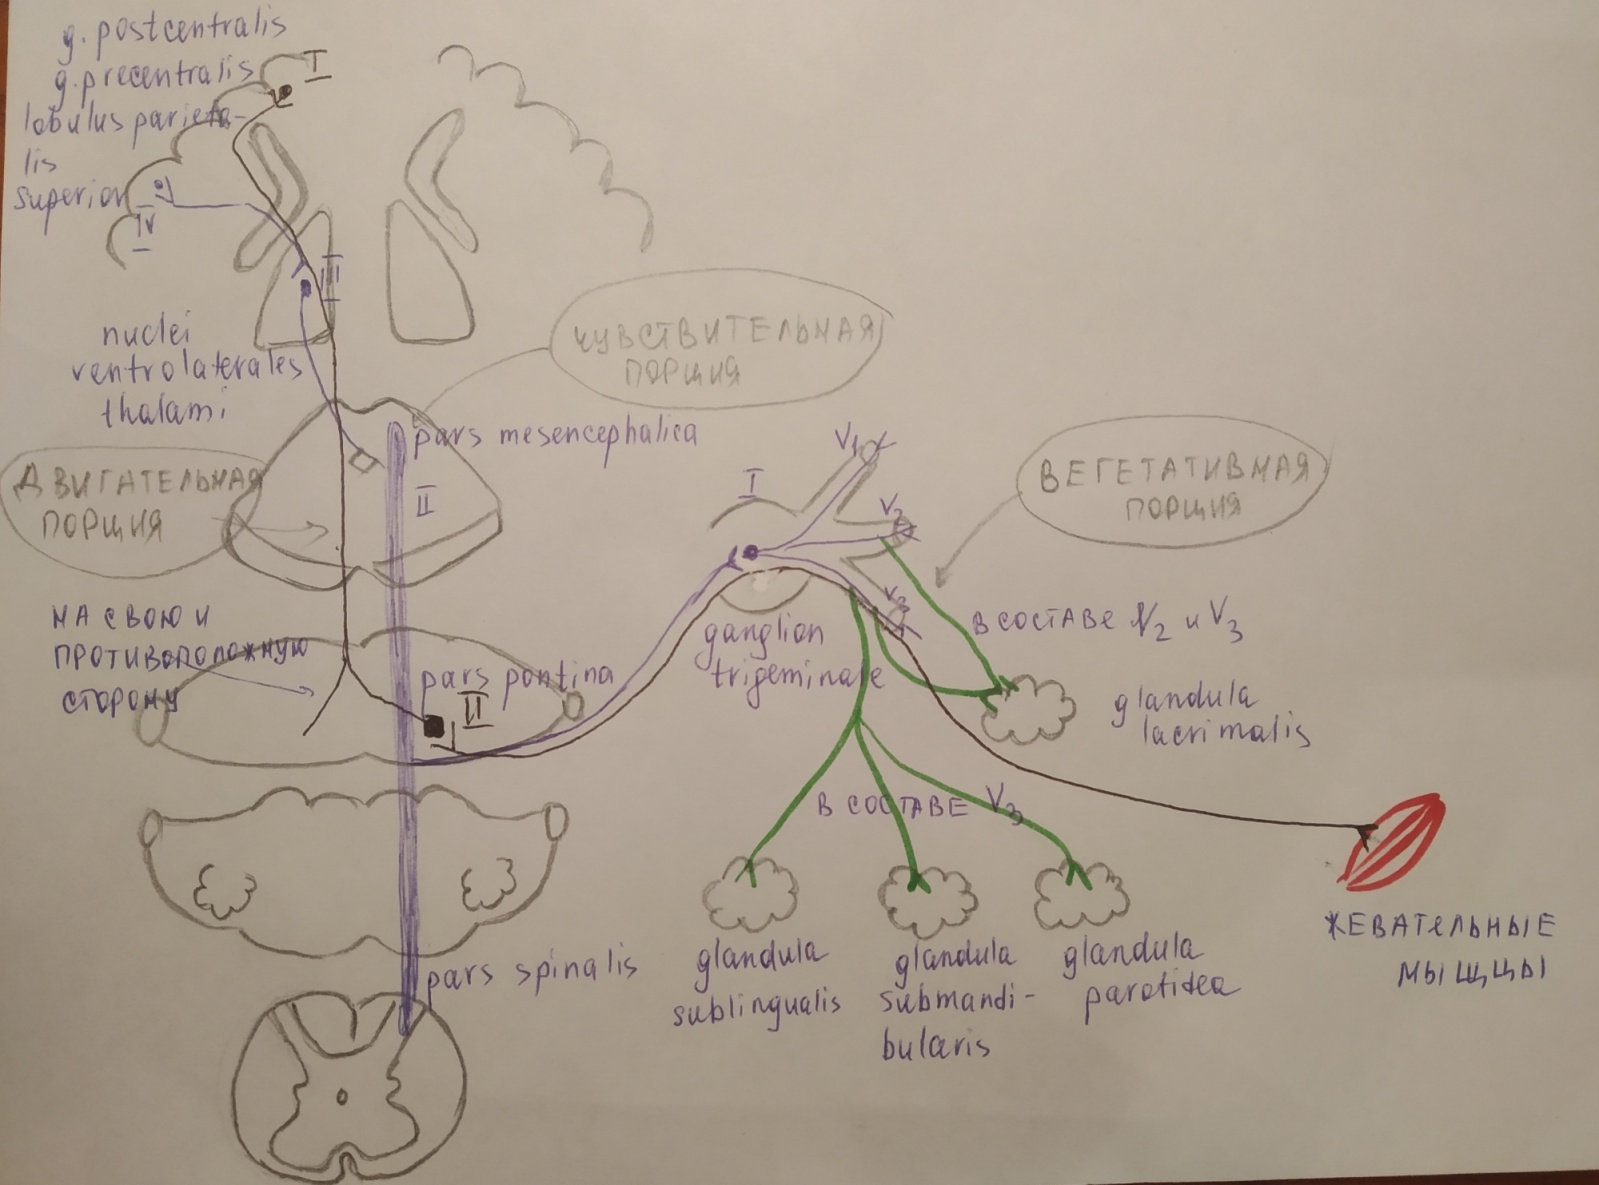 g. postcentralis
g. precentralis
lobulus parieta-
lis
superior
I
IV
III
nuclei
ventrolaterales
thalami
ЧУВСТВИТЕЛЬНАЯ
ПОРЦИЯ
pars mesencephalica
II
ДВИГАТЕЛЬНАЯ
ПОРЦИЯ
НА СВОЮ И
ПРОТИВОПОЛОЖНУЮ
СТОРОНУ
pars pontina
II
I
V1
V2
V3
ganglion
trigeminale
ВЕГЕТАТИВНАЯ
ПОРЦИЯ
В СОСТАВЕ V2 и V3
glandula
lacrimalis
В СОСТАВЕ V3
pars spinalis
glandula
sublingualis
glandula
submandi-
bularis
glandula
parotidea
ЖЕВАТЕЛЬНЫЕ
МЫЩЦЫ